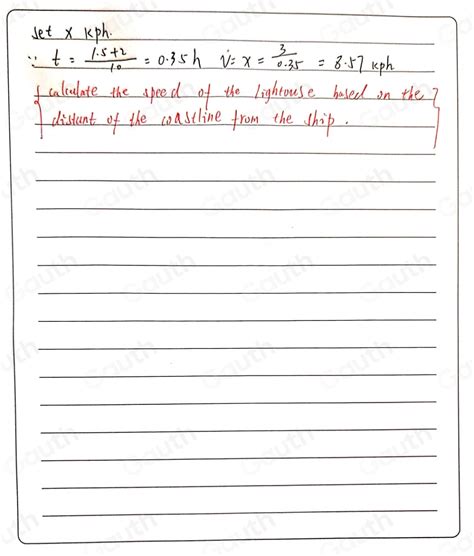 set x kph.
∵ t = 1.5+2/10 = 0.35h v̇ = x = 3/0.35 = 8.57 kph
{ calculate the speed of the lighthouse based on the }
distant of the coastline from the ship.
Gauth